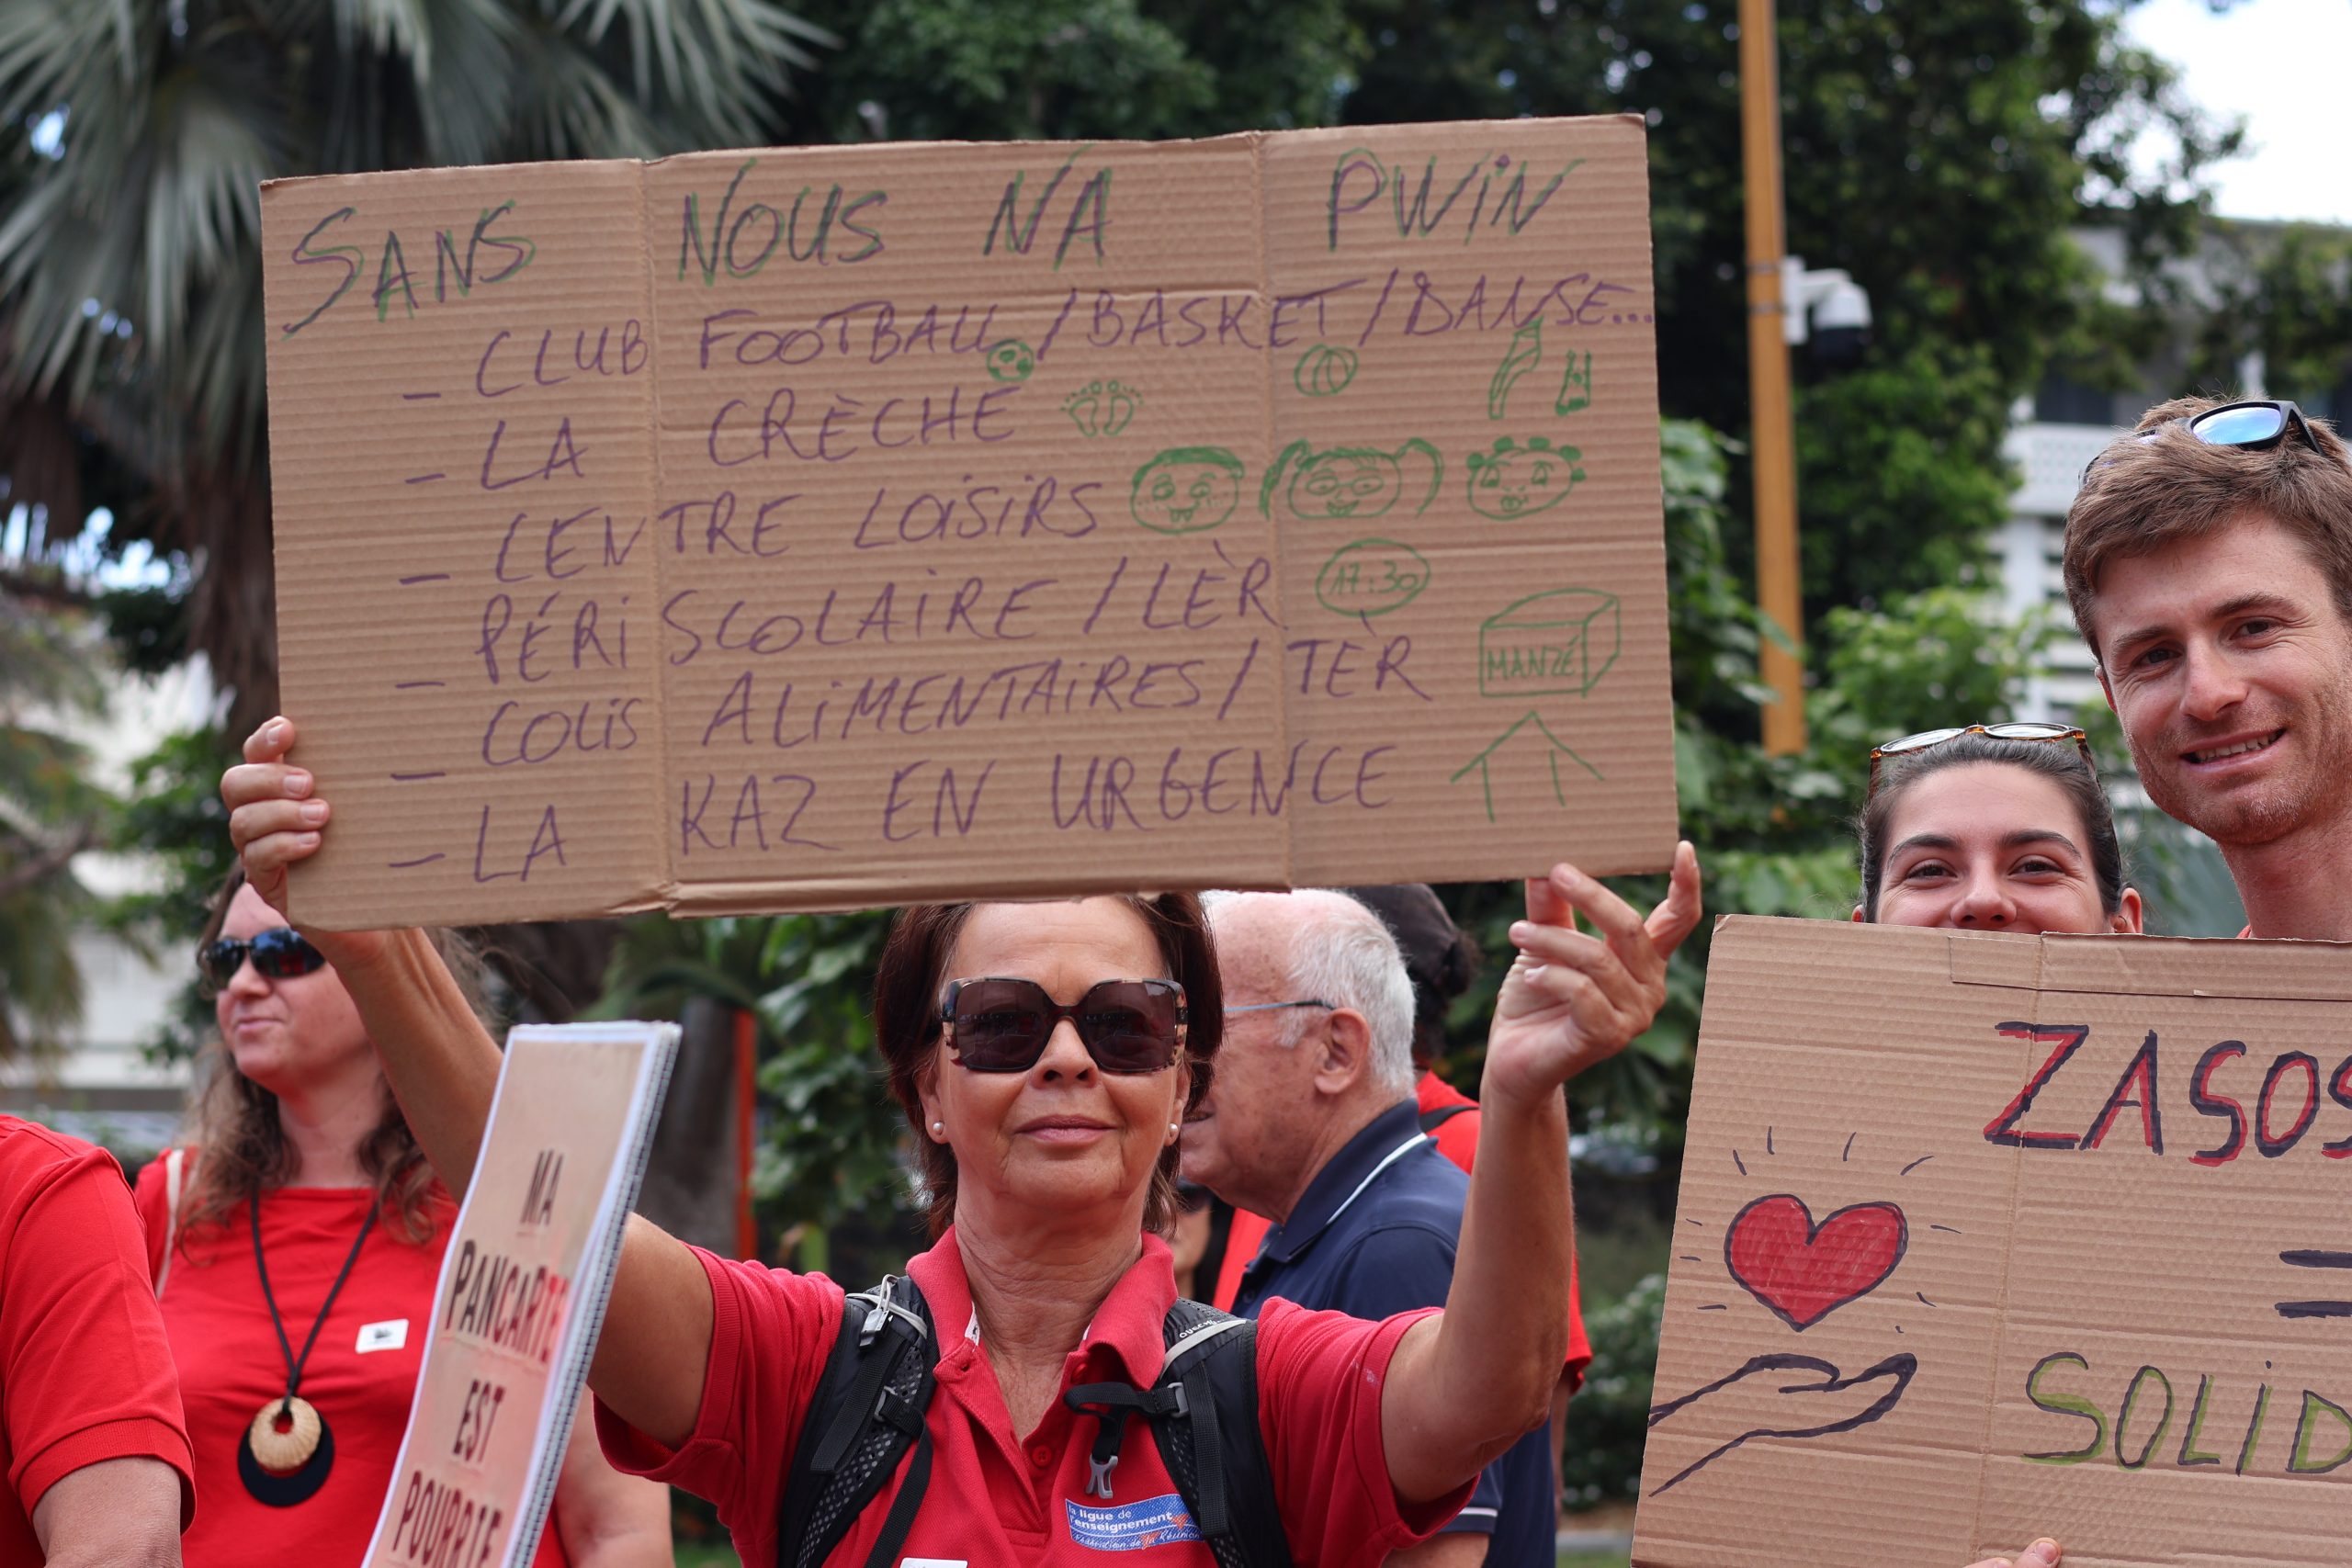 SANS NOUS NA PWIN
– CLUB FOOTBALL / BASKET / DANSE...
– LA CRÈCHE
– CENTRE LOISIRS
– PÉRISCOLAIRE / LÈR 17:30
– COLIS ALIMENTAIRES / TÈR MANZÉ
– LA KAZ EN URGENCE
MA
PANCARTE
EST
POURRIE
ZASOS
=
SOLID
la ligue de
l'enseignement
Fédération de la Réunion